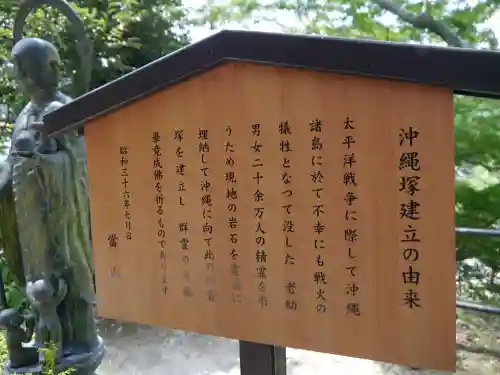 沖縄塚建立の由来
太平洋戦争に際して沖縄
諸島に於て不幸にも戦火の
犠牲となつて没した 老幼
男女二十余万人の精霊を弔
うため現地の岩石を
埋納して沖縄に向て此の
塚を建立し 群霊の
畢竟成佛を祈るものであります
昭和三十六年七月吉日
當山